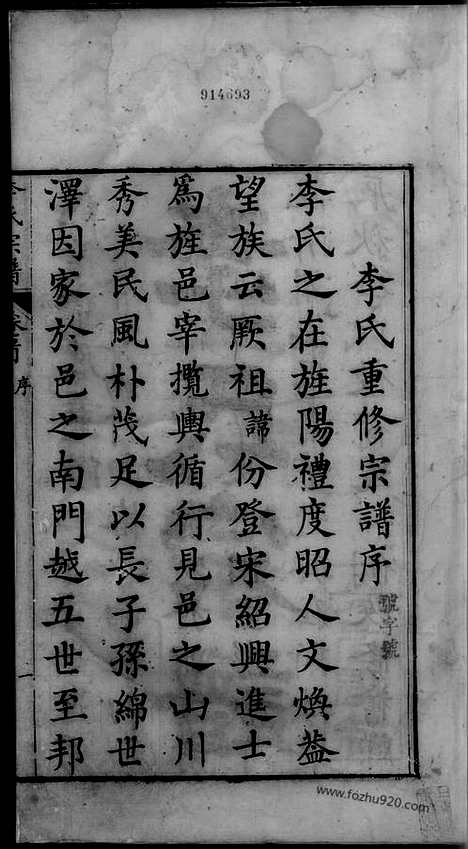 914693
李氏重修宗譜序
號字號
李氏之在旌陽禮度昭人文煥葢
望族云厥祖諱份登宋紹興進士
爲旌邑宰攬輿循行見邑之山川
秀美民風朴茂足以長子孫綿世
澤因家於邑之南門越五世至邦
李氏宗譜
序
一
www.fozhu920.com